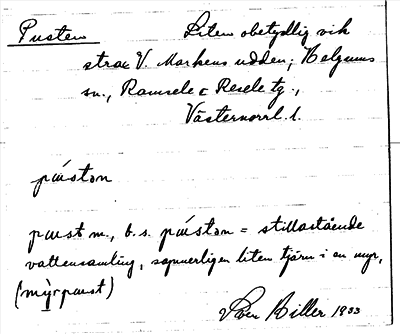 Pusten Liten obetydlig vik
strax V. Markens udden; Helgums
sn., Ramsele o Resele tg.,
Västernorrl. l.
púston
pust m., b. s. púston = stillastående
vattensamling, synnerligen liten tjärn i en myr,
(mýrpust)
Sven Biller 1933